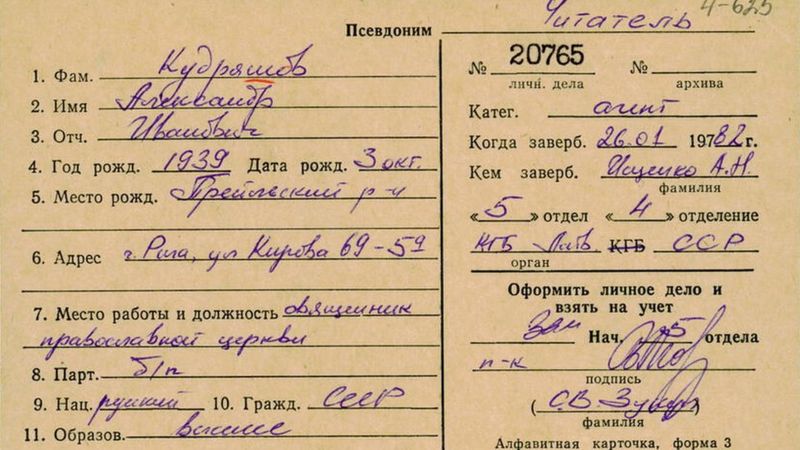 4-625
Псевдоним Читатель
1. Фам. Кудряшов
2. Имя Александр
3. Отч. Иванович
4. Год рожд. 1939 Дата рожд. 3 окт.
5. Место рожд. Прейльский р-н
6. Адрес г. Рига, ул Кирова 69-59
7. Место работы и должность священник
православной церкви
8. Парт. б/п
9. Нац. русский 10. Гражд. СССР
11. Образов. высшее
№ 20765 №
личн. дела архива
Катег. агент
Когда заверб. 26.01 19782 г.
Кем заверб. Ищенко А.Н.
фамилия
«5» отдел «4» отделение
КГБ Латв. КГБ ССР
орган
Оформить личное дело и
взять на учет
Зам Нач. 5 отдела
п-к
подпись
(С.В. )
фамилия
Алфавитная карточка, форма 3